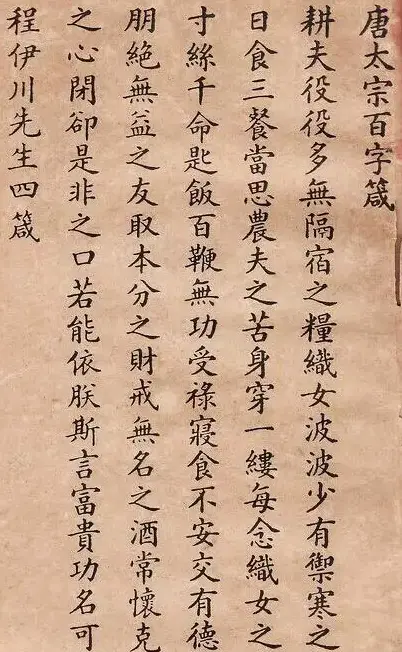 唐太宗百字箴
耕夫役役多無隔宿之糧織女波波少有禦寒之
日食三餐當思農夫之苦身穿一縷每念織女之
寸絲千命匙飯百鞭無功受祿寢食不安交有德
朋絕無益之友取本分之財戒無名之酒常懷克
之心閉卻是非之口若能依朕斯言富貴功名可
程伊川先生四箴